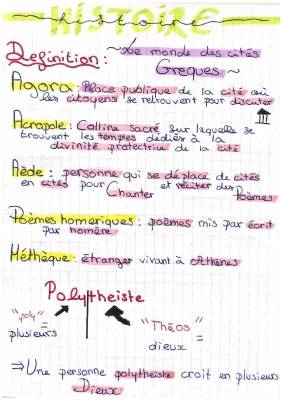 HISTOIRE
histoire
Definition : ~Le monde des cités
Greques~
Agora : Place publique de la cité où
les citoyens se retrouvent pour discuter
Acropole : Colline sacré sur laquelle se
trouvent les temples dédier à la
divinité protectrice de la cité
Aède : personne qui se déplace de cités
en cités pour Chanter et réciter des Poèmes
Poèmes homeriques : poèmes mis par écrit
par homère
Méthèque : étranger vivant à Athènes
Polytheiste
"poly" = "Théos" =
plusieurs dieux
⇒ Une personne polytheiste croit en plusieurs
Dieux